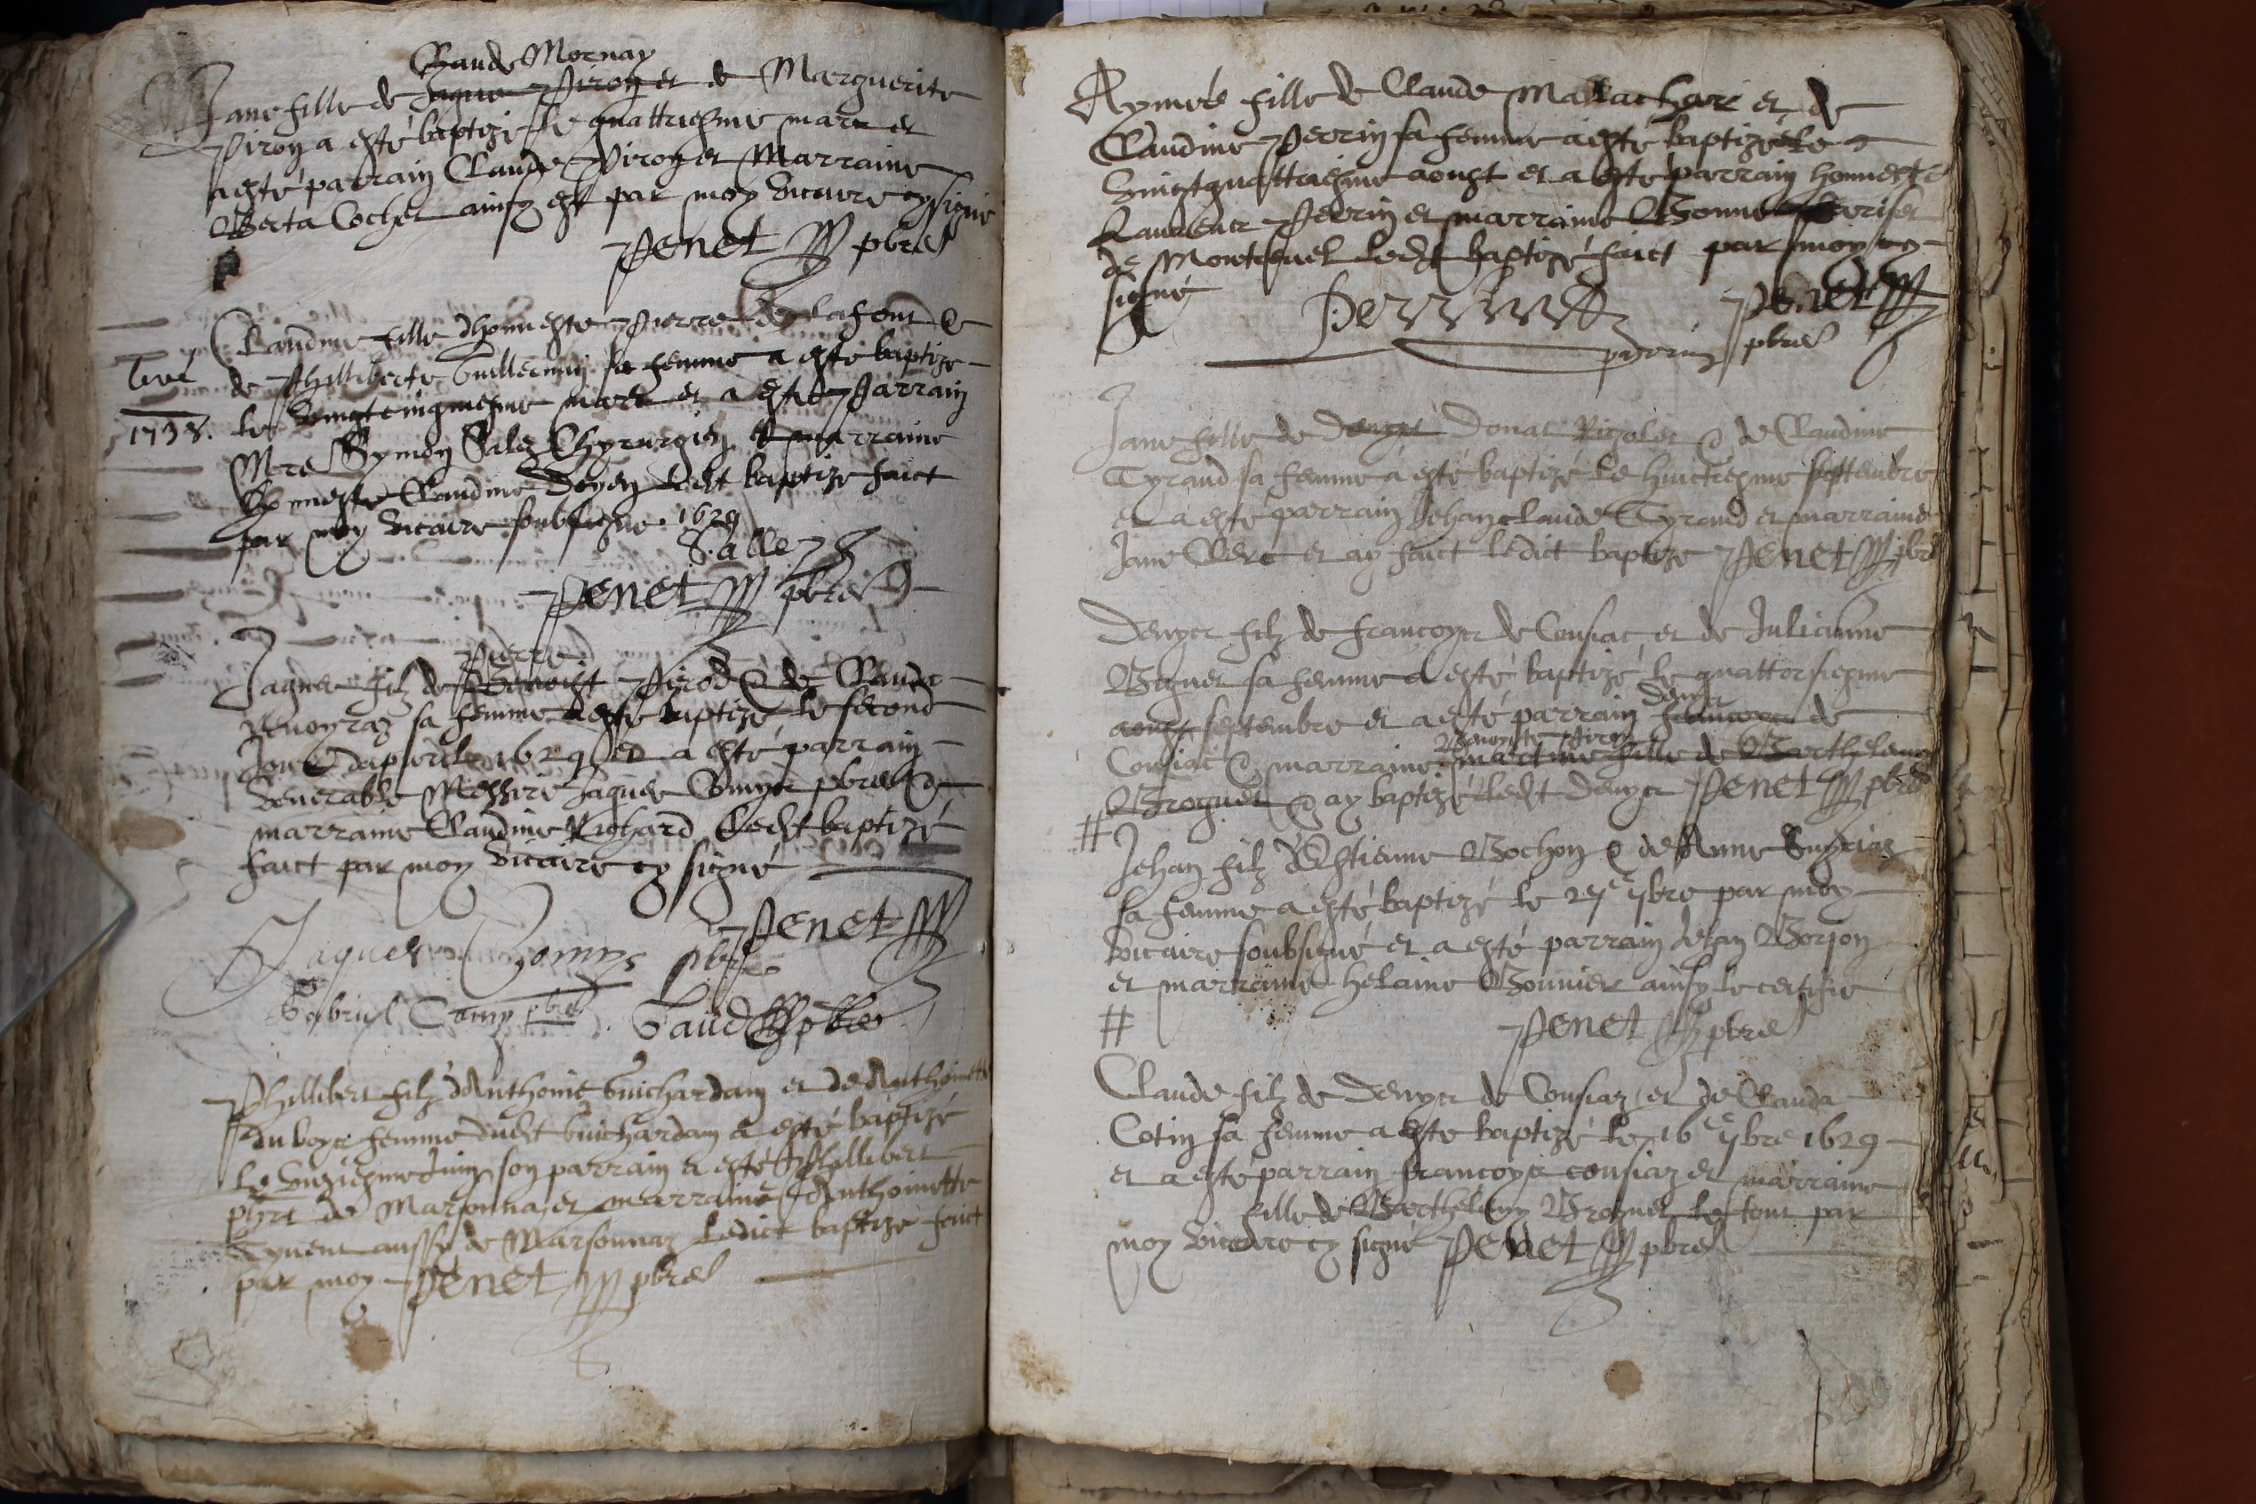 Claude Mornay
Jane fille de Jaque Piron et de Marguerite
Piron a esté baptizé le quattriesme mars et
a esté parrain Claude Piron et Marraine
Berta Cochet ainsy est par moy vicaire cy signé
Penet pbre
Claudine fille dhonneste Pierre de Lafont &
de Philliberte Guillermin sa femme a esté baptize
le vingtcinqiesme mars et a esté Parrain
Mre Symon Sales Chyrurgien et marraine
honneste Claudine Doyen ledit baptizé faict
par moy vicaire soubsigné. 1629
Tiré
1738.
Sallez
Penet pbre
Pierre
Jaques filz de Benoist Pirod & de Claude
sa femme a esté baptizé le second
Jour dapvril 1629 et a esté parrain
Venerable Messire Jaques Comys pbre &
marraine Claudine Richard ledit baptizé
faict par moy vicaire cy signé
Penet
Jaques Comys pbre
Gabriel Comys pbre. Gaud pbre
Phillibert filz dAnthoine Guichardan et de Anthoinette
du boys femme dudit Guichardan a esté baptizé
le unziesme Juin son parrain a esté Phillibert
de Marsonna et marraine Anthoinette
Tynent aussy de Marsonnaz ledict baptizé faict
par moy Penet pbre
Aymée fille de Claude Mallachar et de
Claudine Perrin sa femme a esté baptizé le
vingtquattriesme aoust et a esté parrain honneste
Laurent Perrin et marraine Bonne
de Montluel ledit baptizé faict par moy cy
signé
Perrin Penet
parrin pbre
Jane fille de Denys Donat Rigolet & de Claudine
Tyrand sa femme a esté baptizé le huictiesme septembre
et a esté parrain Jehan claude Tyrand et marraine
Jane Clerc et ay faict ledict baptize Penet pbre
Denys filz de francoys de Consiat et de Julianne
Broguet sa femme a esté baptizé le quattorsiesme
aoust septembre et a esté parrain Denys francoys de
Consiat & marraine Benoiste Piron martine fille de Barthelemy
Broguet & ay baptizé ledit Denys Penet pbre
#
Jehan filz dEstienne Bochon & de Anne
sa femme a esté baptizé le 27e 9bre par moy
vicaire soubsigné et a esté parrain Jehan Borjon
et marraine helaine Bonnier ainsy le certifie
# Penet pbre
Claude filz de Denys de Consiaz et de Clauda
Cotin sa femme a esté baptizé le 16e 9bre 1629
et a esté parrain francoys consiaz et marraine
fille de Barthelemy Broguet le tout par
moy vicaire cy signé Penet pbre